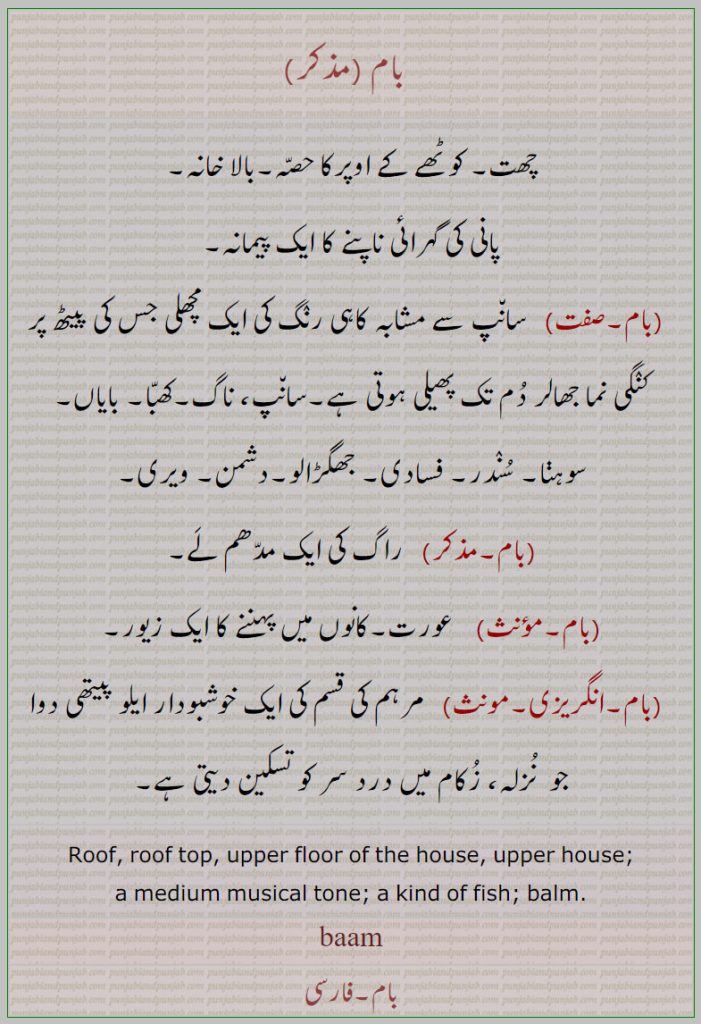 بام (مذکر)
چھت۔ کوٹھے کے اوپر کا حصّہ۔ بالا خانہ۔
پانی کی گہرائی ناپنے کا ایک پیمانہ۔
(بام۔صفت) سانپ سے مشابہ کاہی رنگ کی ایک مچھلی جس کی پیٹھ پر
کنگی نما جھالر دُم تک پھیلی ہوتی ہے۔سانپ، ناگ۔کھبّا۔ بایاں۔
سوہنا۔ سُندر۔ فسادی۔ جھگڑالو۔دشمن۔ ویری۔
(بام۔مذکر) راگ کی ایک مدّھم لَے۔
(بام۔مؤنث) عورت۔کانوں میں پہننے کا ایک زیور۔
(بام۔انگریزی۔مونث) مرہم کی قسم کی ایک خوشبودار ایلو پیتھی دوا
جو نُزلہ، زُکام میں درد سر کو تسکین دیتی ہے۔
Roof, roof top, upper floor of the house, upper house;
a medium musical tone; a kind of fish; balm.
baam
بام۔فارسی